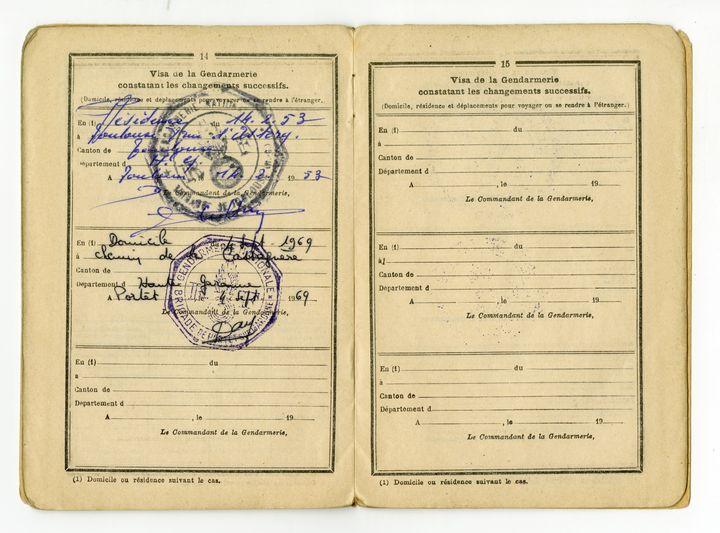 14
Visa de la Gendarmerie
constatant les changements successifs.
(Domicile, résidence et déplacements pour voyager ou se rendre à l'étranger.)
En (1) Résidence du 14.2.53
à Toulouse
Canton de Toulouse
Département d H. G.
A Toulouse, le 14.2. 1953
Le Commandant de la Gendarmerie,
En (1) Domicile du 4 Sept. 1969
à chemin de la
Canton de
Département d Haute Garonne
A Portet, le 4 Sept 1969
Le Commandant de la Gendarmerie,
GENDARMERIE NATIONALE
BRIGADE DE
En (1) du
à
Canton de
Département d
A , le 19
Le Commandant de la Gendarmerie,
(1) Domicile ou résidence suivant le cas.
15
Visa de la Gendarmerie
constatant les changements successifs.
(Domicile, résidence et déplacements pour voyager ou se rendre à l'étranger.)
En (1) du
à
Canton de
Département d
A , le 19
Le Commandant de la Gendarmerie,
En (1) du
à
Canton de
Département d
A , le 19
Le Commandant de la Gendarmerie,
En (1) du
à
Canton de
Département d
A , le 19
Le Commandant de la Gendarmerie,
(1) Domicile ou résidence suivant le cas.